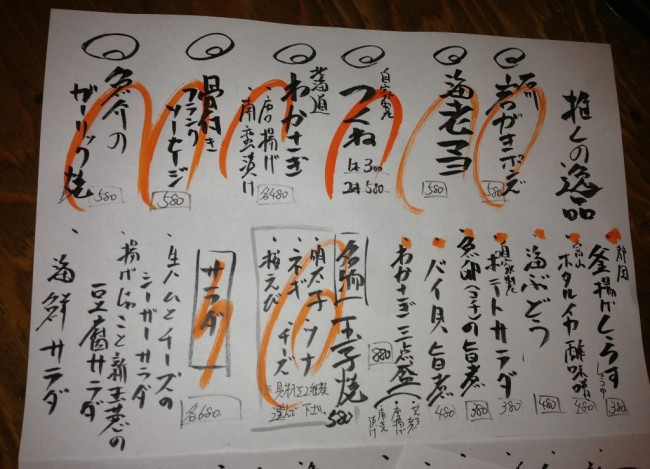 推しの逸品
石川
岩がきポン酢
580
海老マヨ
580
自家製
つくね
1本 300
2本 580
北海道
わかさぎ
・唐揚げ
・南蛮漬け
各480
骨付き
フランク
ソーセージ
580
魚介の
ガーリック焼
580
静岡
釜揚げしらす
380
富山
ホタルイカ酢味噌
480
海ぶどう
480
自家製
ポテトサラダ
380
魚卵(マコ)の旨煮
380
バイ貝旨煮
480
わかさぎ三点盛
880
唐揚げ
南蛮漬け
名物 玉子焼
580
明太子 ツナ
ネギ チーズ
桜えび
具材は2種類
選んで下さい
サラダ
各680
・生ハムとチーズの
シーザーサラダ
・揚げじゃこと新玉葱の
豆腐サラダ
・海鮮サラダ